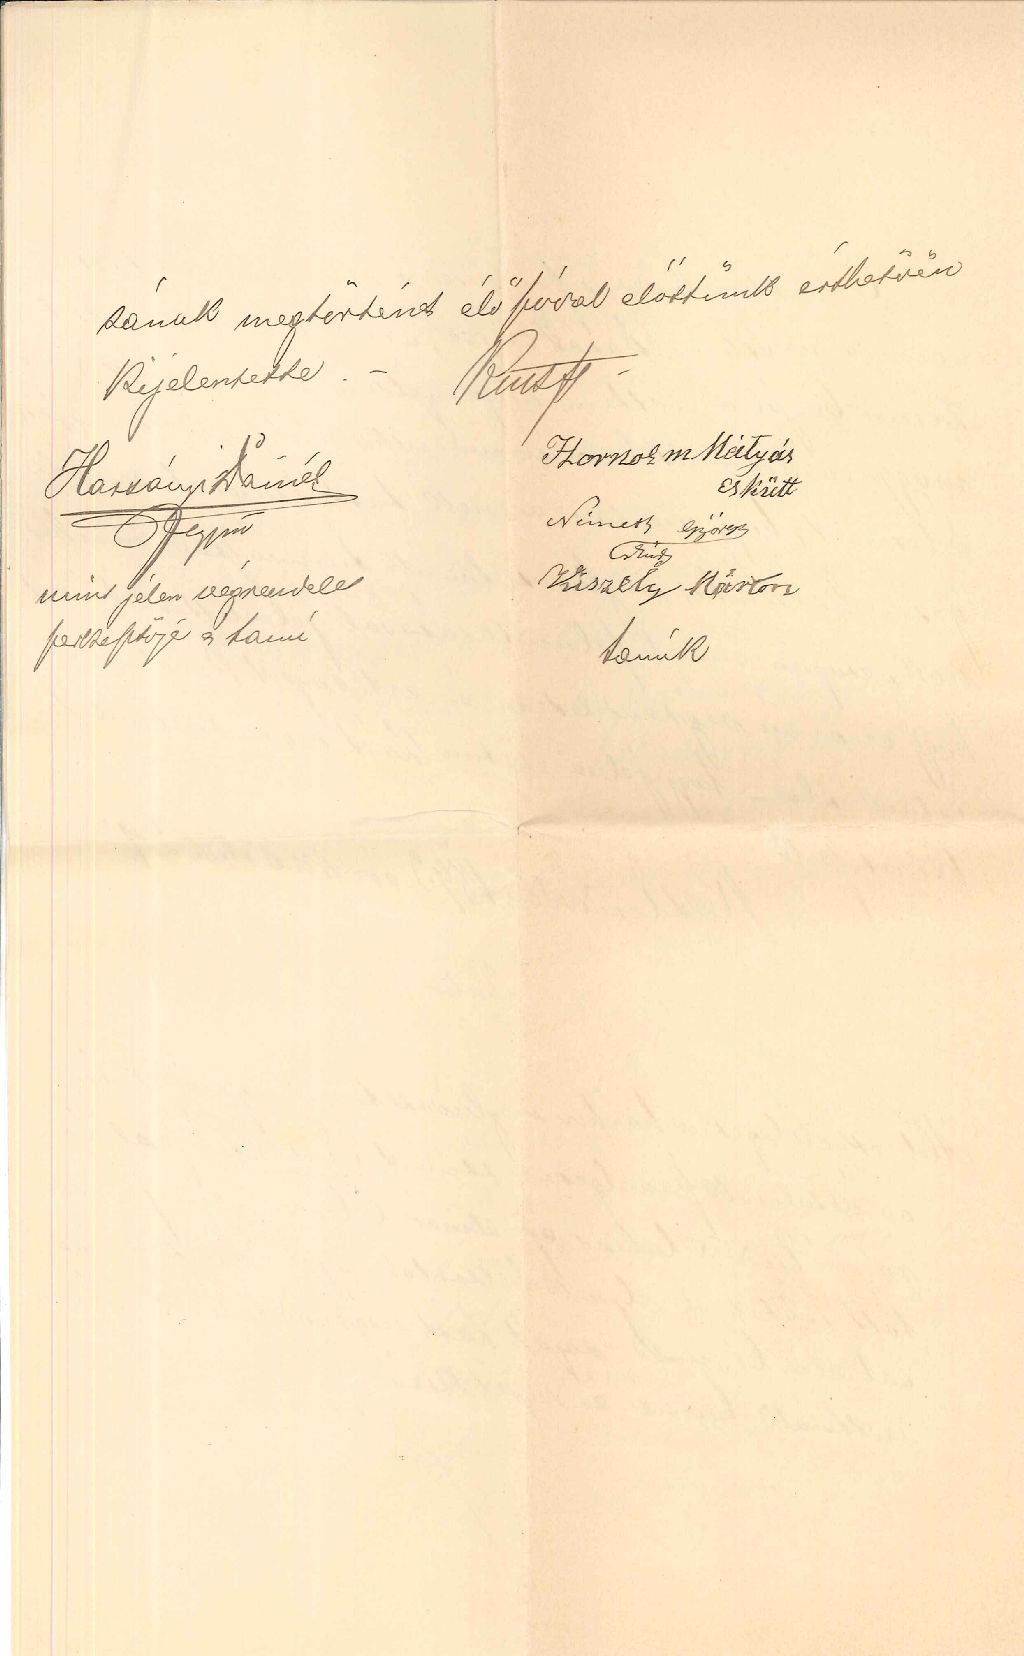 tának megtörténtét élő szóval előttünk érthetően
kijelentette. – Kmft –
Harsányi Dániel
jegyző
mint jelen végrendelet
és tanú
Mátyás
eskütt
Német György
Kiszely Márton
tanúk